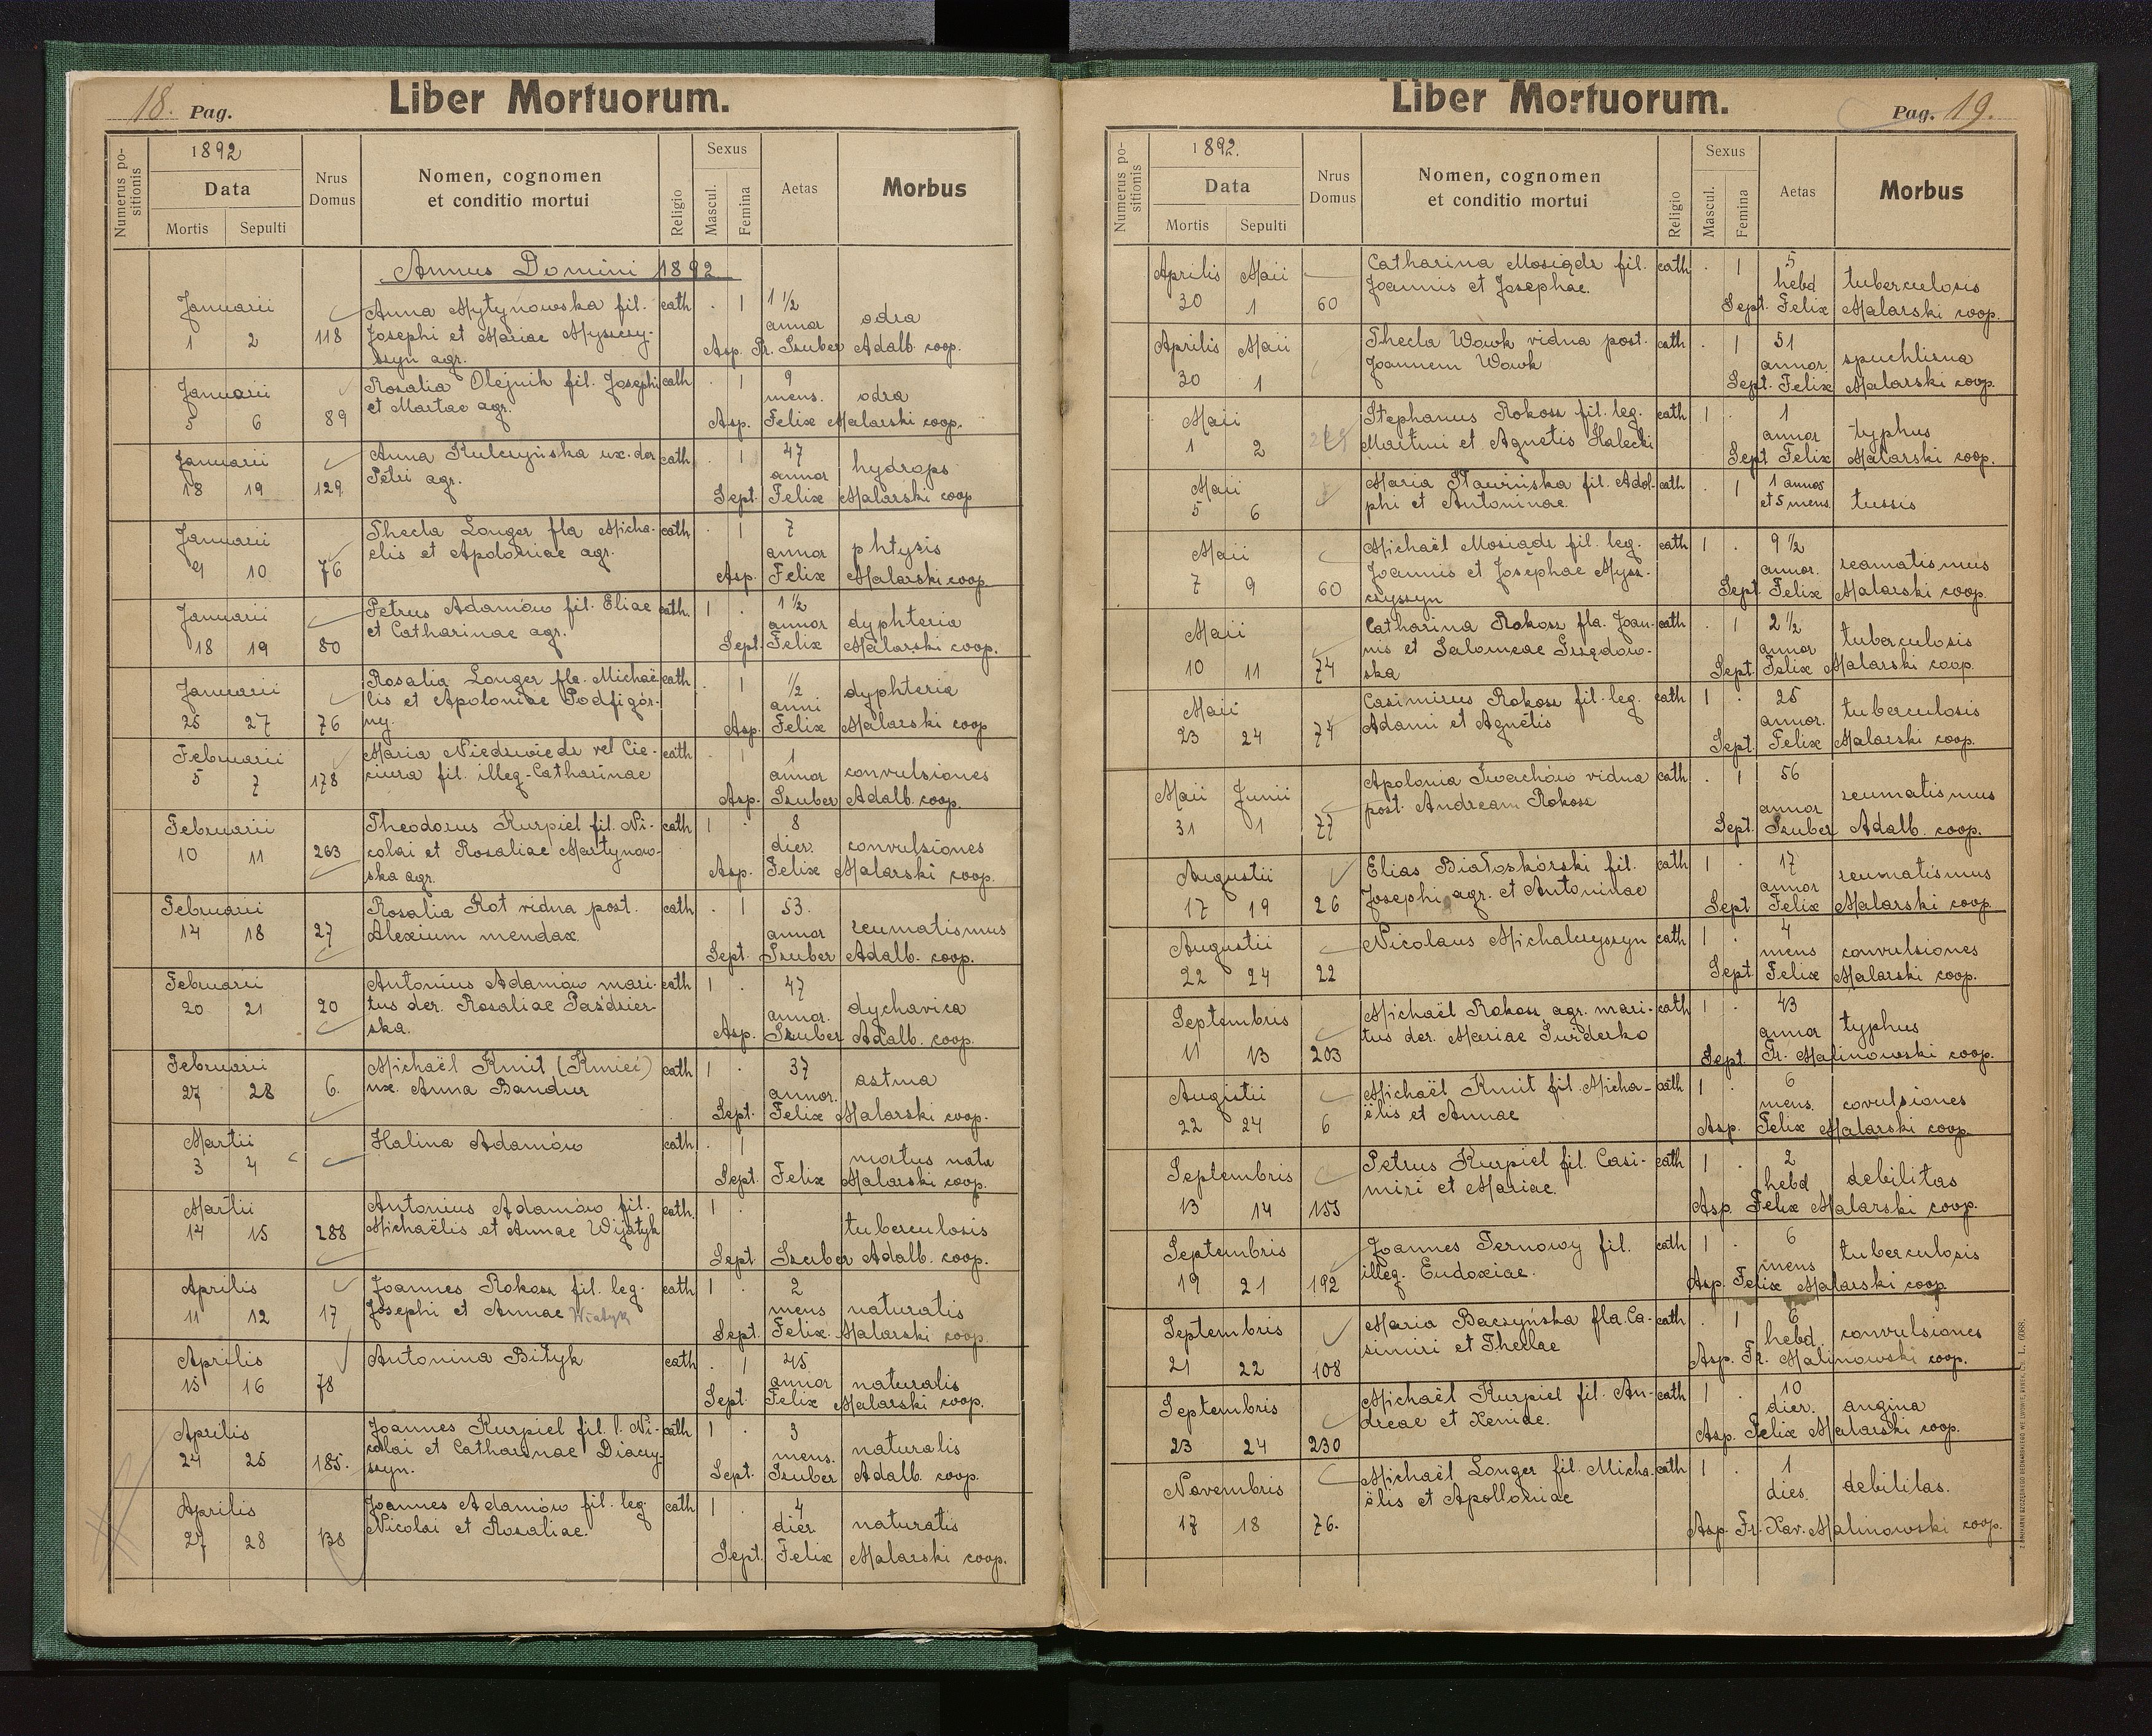 18. Pag.
Liber Mortuorum.
Numerus po-
sitionis
1892
Data
Mortis Sepulti
Nrus
Domus
Nomen, cognomen
et conditio mortui
Religio
Sexus
Mascul.
Femina
Aetas
Morbus
Annus Domini 1892
Januarii Anna Mytynowska fil. cath . 1 1 1/2
Josephi et Mariae Myszczy- annor odra
1 2 118 szyn agr. Asp. Fr. Szuber Adalb. coop.
Januarii Rosalia Olejnik fil. Josephi cath . 1 9
et Martae agr. mens. odra
5 6 89 Asp. Felix Malarski coop.
Januarii Anna Kulczyńska ux. der cath . 1 47
Petri agr. annor hydrops
18 19 129 Sept. Felix Malarski coop
Januarii Thecla Longer fla Micha- cath . 1 7
elis et Apoloniae agr. annor phtysis
9 10 76 Asp. Felix Malarski coop
Januarii Petrus Adamów fil. Eliae cath. 1 . 1 1/2
et Catharinae agr. annor dyphteria
18 19 80 Sept. Felix Malarski coop.
Januarii Rosalia Longer fla. Michaë cath . 1 1/2
lis et Apoloniae Podfigór- anni dyphteria
25 27 76 ny. Asp. Felix Malarski coop
Februarii Maria Niedzwiedz vel Cie- cath . 1 1
5 7 178 ciura fil. illeg. Catharinae annor convulsiones
Asp. Szuber Adalb. coop.
Februarii Theodorus Kurpiel fil. Ni- cath 1 . 8
10 11 263 colai et Rosaliae Martynow- dier. convulsiones
ska agr. Asp. Felix Malarski coop.
Februarii Rosalia Kot vidua post. cath . 1 53.
14 18 27 Alexium mendax. annor reumatismus
Sept. Szuber Adalb. coop.
Februarii Antonius Adamów mari- cath 1 . 47
20 21 20 tus der. Rosaliae Paździer- annor. dychavica
ska. Asp. Szuber Adalb. coop.
Februarii Michaël Kmit (Kmieć) cath 1 . 37
27 28 6. ux. Anna Bandur annor. astma
Sept. Felix Malarski coop.
Martii Halina Adamów cath . 1
3 4 mortus nata
Sept. Felix Malarski coop.
Martii Antonius Adamów fil. cath. 1 .
14 15 288 Michaëlis et Annae Wijatyk tuberculosis
Sept. Szuber Adalb. coop.
Aprilis Joannes Rokosz fil. leg. cath 1 . 2
11 12 17 Josephi et Annae Wiatyk mens naturalis
Sept. Felix. Malarski coop.
Aprilis Antonina Bityk cath . 1 45
15 16 78 annor naturalis
Sept. Felix Malarski coop.
Aprilis Joannes Kurpiel fil. l. Ni- cath 1 . 3
24 25 185. colai et Catharinae Diaczy- mens. naturalis
szyn. Sept. Szuber Adalb. coop.
Aprilis Joannes Adamów fil. leg. cath 1 . 4
27 28 138 Nicolai et Rosaliae. dier naturalis
Sept. Felix Malarski coop.
Liber Mortuorum.
Pag. 19.
Numerus po-
sitionis
1892.
Data
Mortis Sepulti
Nrus
Domus
Nomen, cognomen
et conditio mortui
Religio
Sexus
Mascul.
Femina
Aetas
Morbus
Aprilis Maii Catharina Mosiądz fil. cath . 1 5
Joannis et Josephae. hebd tuberculosis
30 1 60 Sept. Felix Malarski coop.
Aprilis Maii Thecla Wowk vidua post. cath . 1 51
Joannem Wowk annor. spuchlizna
30 1 Sept. Felix Malarski coop.
Maii Stephanus Rokosz fil. leg. cath 1 . 1
Martini et Agnetis Halecki annor typhus
1 2 Sept Felix Malarski coop.
Maii Maria Stawińska fil. Adol- cath . 1 1 annor
5 6 phi et Antoninae. et 5 mens. tussis
Maii Michaël Mosiądz fil. leg. cath 1 . 9 1/2
Joannis et Josephae Mysz- annor. reamatismus
7 9 60 czyszyn Sept Felix Malarski coop.
Maii Catharina Rokosz fla. Joan- cath . 1 2 1/2
nis et Salomeae Grzędow- annor tuberculosis
10 11 74 ska Sept. Felix Malarski coop.
Maii Casimirus Rokosz fil. leg. cath 1 . 25
Adami et Agnetis annor. tuberculosis
23 24 74 Sept. Felix Malarski coop.
Maii Junii Apolonia Iwachów vidua cath . 1 56
post. Andream Rokosz annor reumatismus
31 1 77 Sept. Szuber Adalb. coop.
Augustii Elias Białoskórski fil. cath 1 . 17
Josephi agr. et Antoninae annor reumatismus
17 19 26 Sept Felix Malarski coop.
Augustii Nicolaus Michalczyszyn cath 1 . 4
mens convulsiones
22 24 22 Sept. Felix Malarski coop.
Septembris Michaël Rokosz agr. mari- cath 1 . 43
tus der. Mariae Świderko annor typhus
11 13 203 Sept. Fr. Malinowski coop.
Augustii Michaël Kmit fil. Micha- cath 1 . 6
ëlis et Annae mens. covulsiones
22 24 6 Asp. Felix Malarski coop.
Septembris Petrus Kurpiel fil. Casi- cath 1 . 2
miri et Mariae. hebd debilitas
13 14 155 Asp. Felix Malarski coop.
Septembris Joannes Ternowy fil. cath 1 . 6
illeg. Eudoxiae. mens tuberculosis
19 21 192 Asp. Felix Malarski coop
Septembris Maria Baczyńska fla. Ca- cath . 1 6
simiri et Theclae hebd. convulsiones
21 22 108 Asp. Fr. Malinowski coop.
Septembris Michaël Kurpiel fil. An- cath 1 . 10
dreae et Xeniae. dier. angina
23 24 230 Asp. Felix Malarski coop.
Novembris Michaël Longer fil. Micha- cath 1 . 1
ëlis et Apolloniae dies. debilitas.
17 18 76. Asp. Fr. Xav. Malinowski coop.